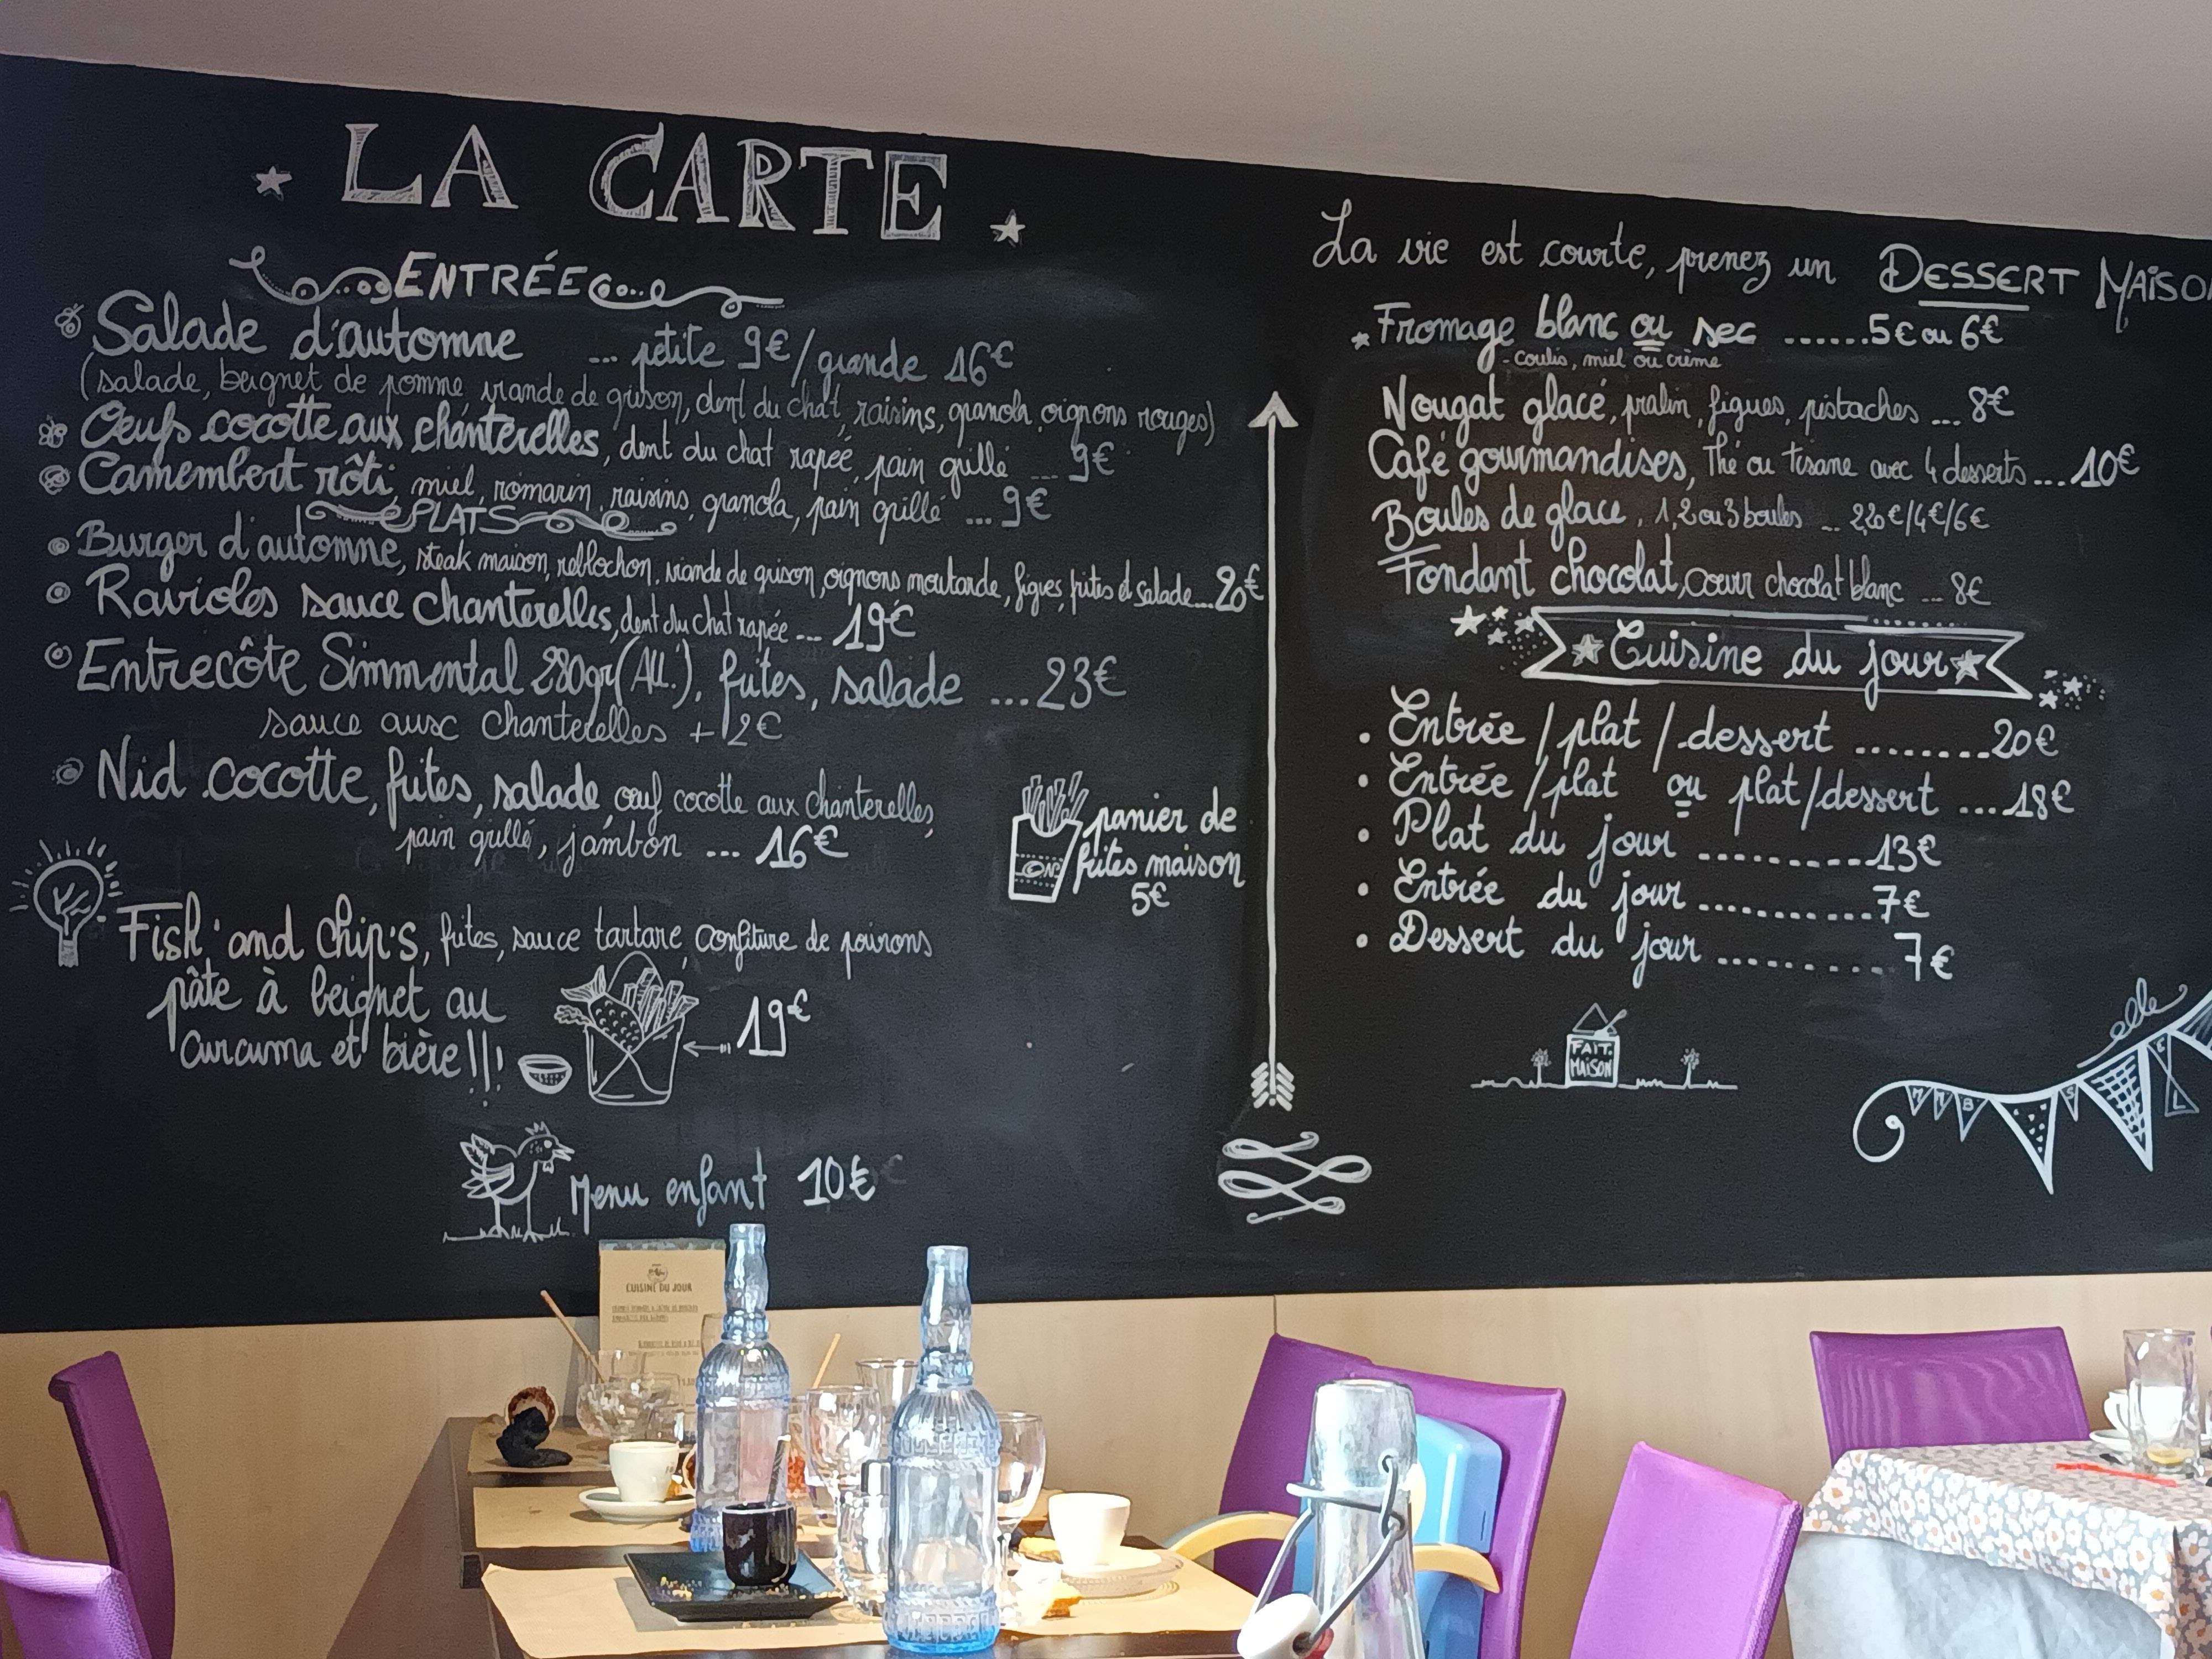 LA CARTE
ENTRÉE
Salade d'automne ... petite 9€/grande 16€
(salade, beignet de pomme, viande de grison, dent du chat, raisins, granola, oignons rouges)
Oeufs cocotte aux chanterelles, dent du chat rapée, pain grillé ... 9€
Camembert rôti, miel, romarin, raisins, granola, pain grillé ... 9€
PLATS
Burger d'automne, steak maison, reblochon, viande de grison, oignons moutarde, figues, frites et salade...20€
Ravioles sauce chanterelles, dent du chat rapée ... 19€
Entrecôte Simmental 280gr(All.), frites, salade ...23€
sauce aux chanterelles +2€
Nid cocotte, frites, salade, oeuf cocotte aux chanterelles,
pain grillé, jambon ... 16€
panier de
frites maison
5€
Fish'and Chip's, frites, sauce tartare, confiture de poivrons
pâte à beignet au
curcuma et bière!!!
19€
Menu enfant 10€
La vie est courte, prenez un DESSERT MAISO
Fromage blanc ou sec .......5€ ou 6€
- coulis, miel ou crème
Nougat glacé, pralin, figues, pistaches ... 8€
Café gourmandises, Thé ou tisane avec 4 desserts....10€
Boules de glace, 1, 2 ou 3 boules ... 2,20€/4€/6€
Fondant chocolat, coeur chocolat blanc ... 8€
Cuisine du jour
• Entrée/plat/dessert ........20€
• Entrée/plat ou plat/dessert ...18€
• Plat du jour ..........13€
• Entrée du jour ...........7€
• Dessert du jour .......... 7€
FAIT
MAISON
CUISINE DU JOUR